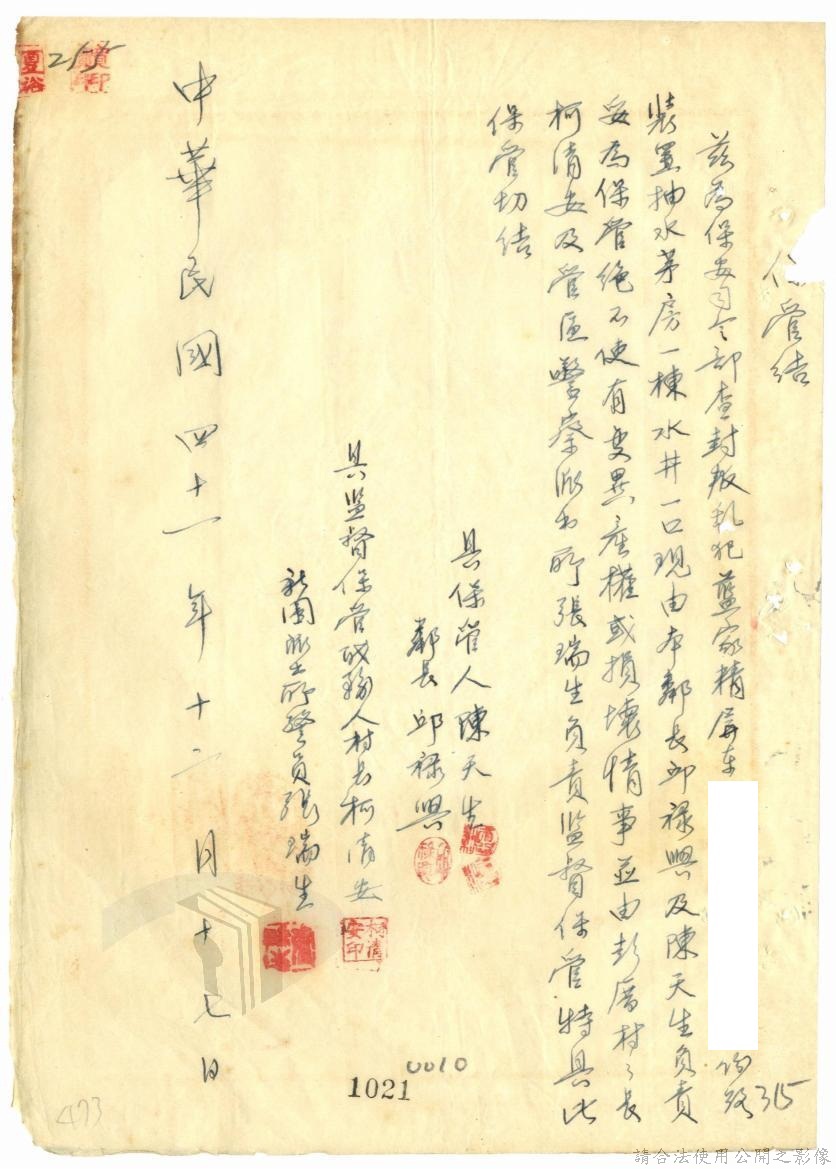 保管結
茲為保安司令部查封叛乱犯藍家精屏东
裝置抽水茅房一棟水井一口現由本鄰長邱祿興及陳天生負責
妥為保管絶不使有变異產權或損壞情事並由彭厝村々長
柯清安及管區警察派出所張瑞生负责監督保管特具此
保管切结
具保管人陳天生
鄰長邱祿興
具监督保管战務人村长柯清安
柯清安印
派出所警员張瑞生
中華民國四十一年十二月十七日
夏裕
215
315
0010
1021
473
請合法使用公開之影像